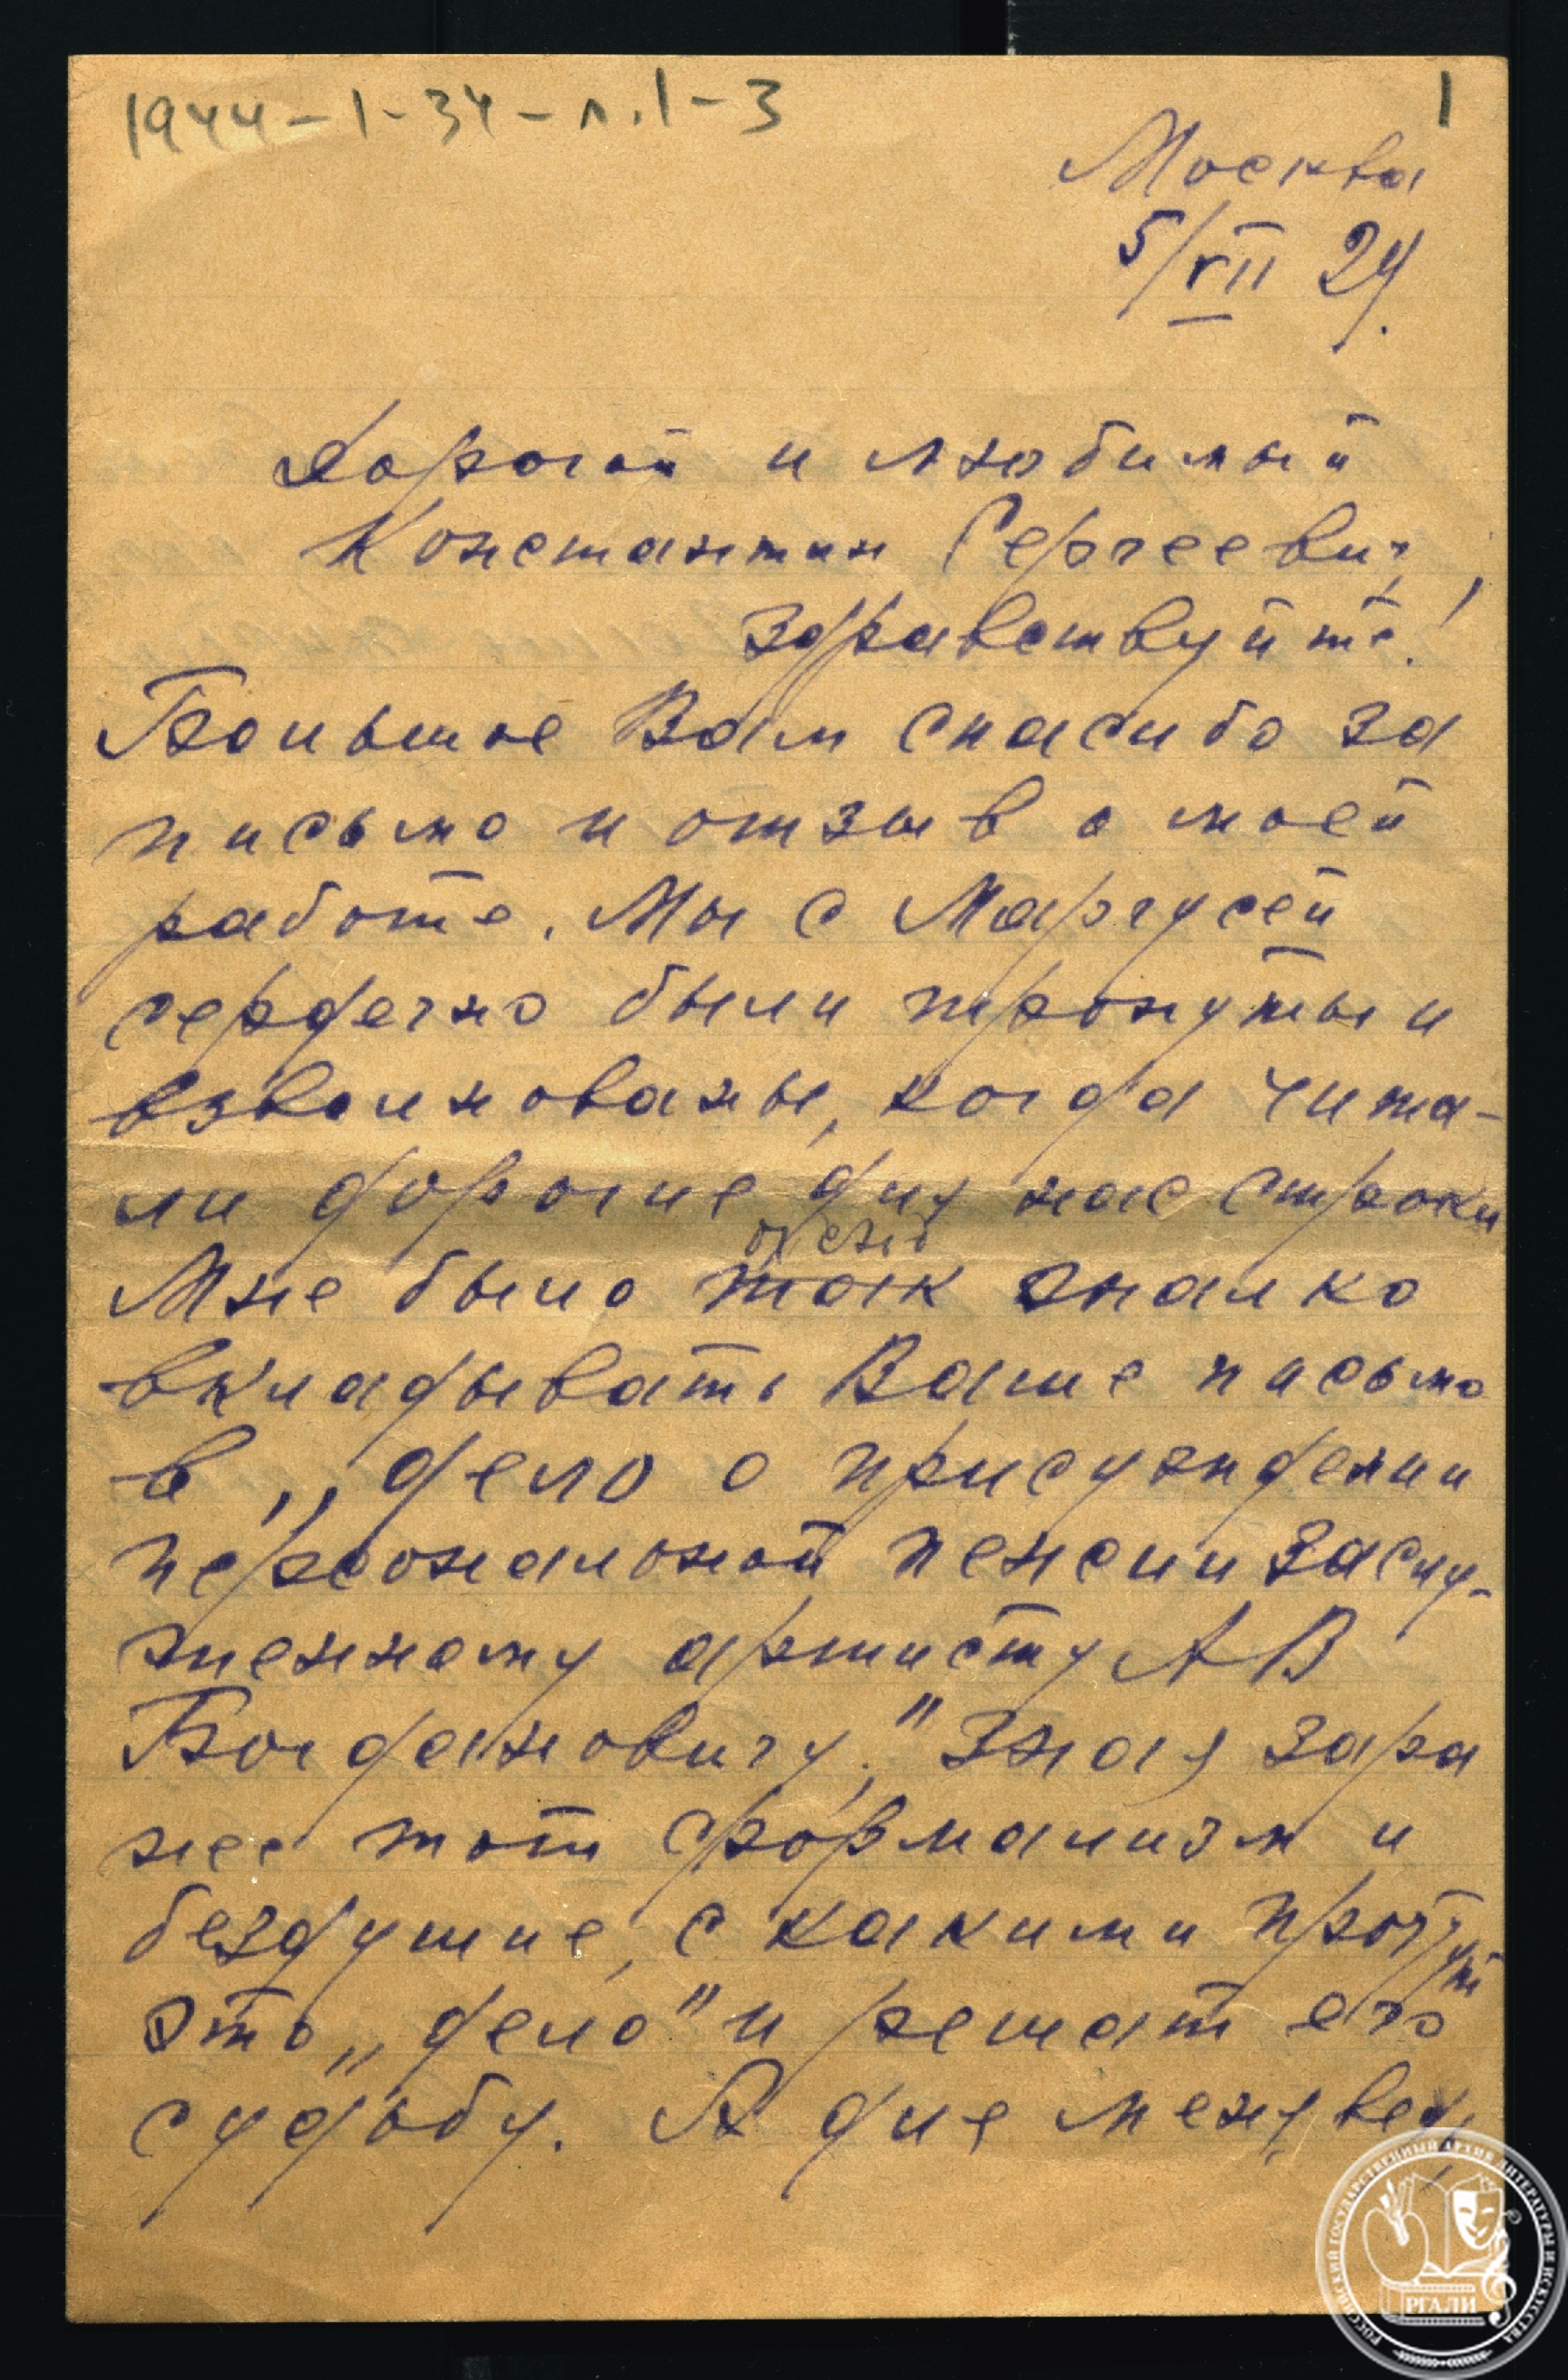 1944-1-34-л.1-3
1
Москва
5/VII 24.
Дорогой и любимый
Константин Сергеевич,
здравствуйте!
Большое Вам спасибо за
письмо и отзыв о моей
работе. Мы с Маргусей
сердечно были тронуты и
взволнованы, когда чита-
ли дорогие для нас строки
Мне было так жалко
вкладывать Ваше письмо
в „дело о присуждении
персональной пенсии заслу-
женному артисту АВ
Богдановичу." Зная зара
нее тот формализм и
бездушие, с какими прочтут
это „дело" и решат его
судьбу. А для меня, ведь,
РОССИЙСКИЙ ГОСУДАРСТВЕННЫЙ АРХИВ ЛИТЕРАТУРЫ И ИСКУССТВА
РГАЛИ